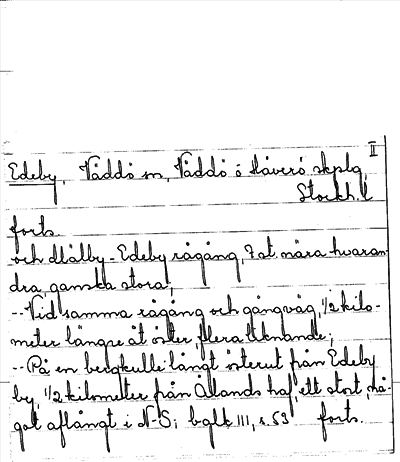 II
Edeby, Väddö sn, Väddö o Häverö skplg,
Stockh. l
forts.
och Älby-Edeby rågång, 7 st. nära hvaran-
dra, ganska stora;
-- Vid samma rågång och gångväg, 1/2 kilo-
meter längre åt öster, flera liknande;
-- På en bergkulle långt österut från Edeby
by, 1/2 kilometer från Ålands haf, ett stort, nå-
got aflångt i N-S; bglk III, s. 53 forts.